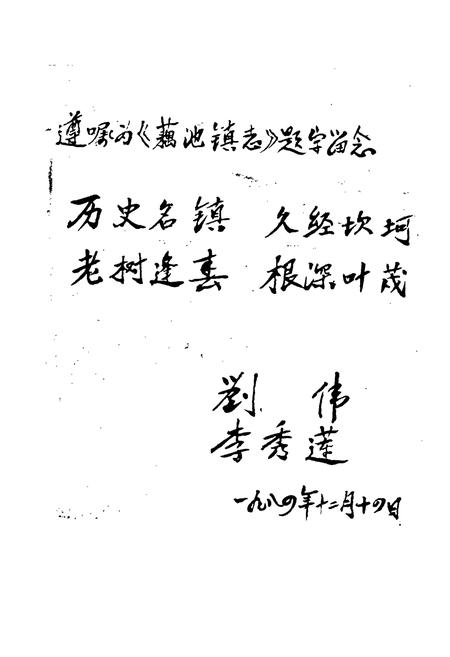 遵嘱为《藕池镇志》题字留念
历史名镇 久经坎坷
老树逢春 根深叶茂
劉 伟
李秀莲
一九八四年十二月十四日